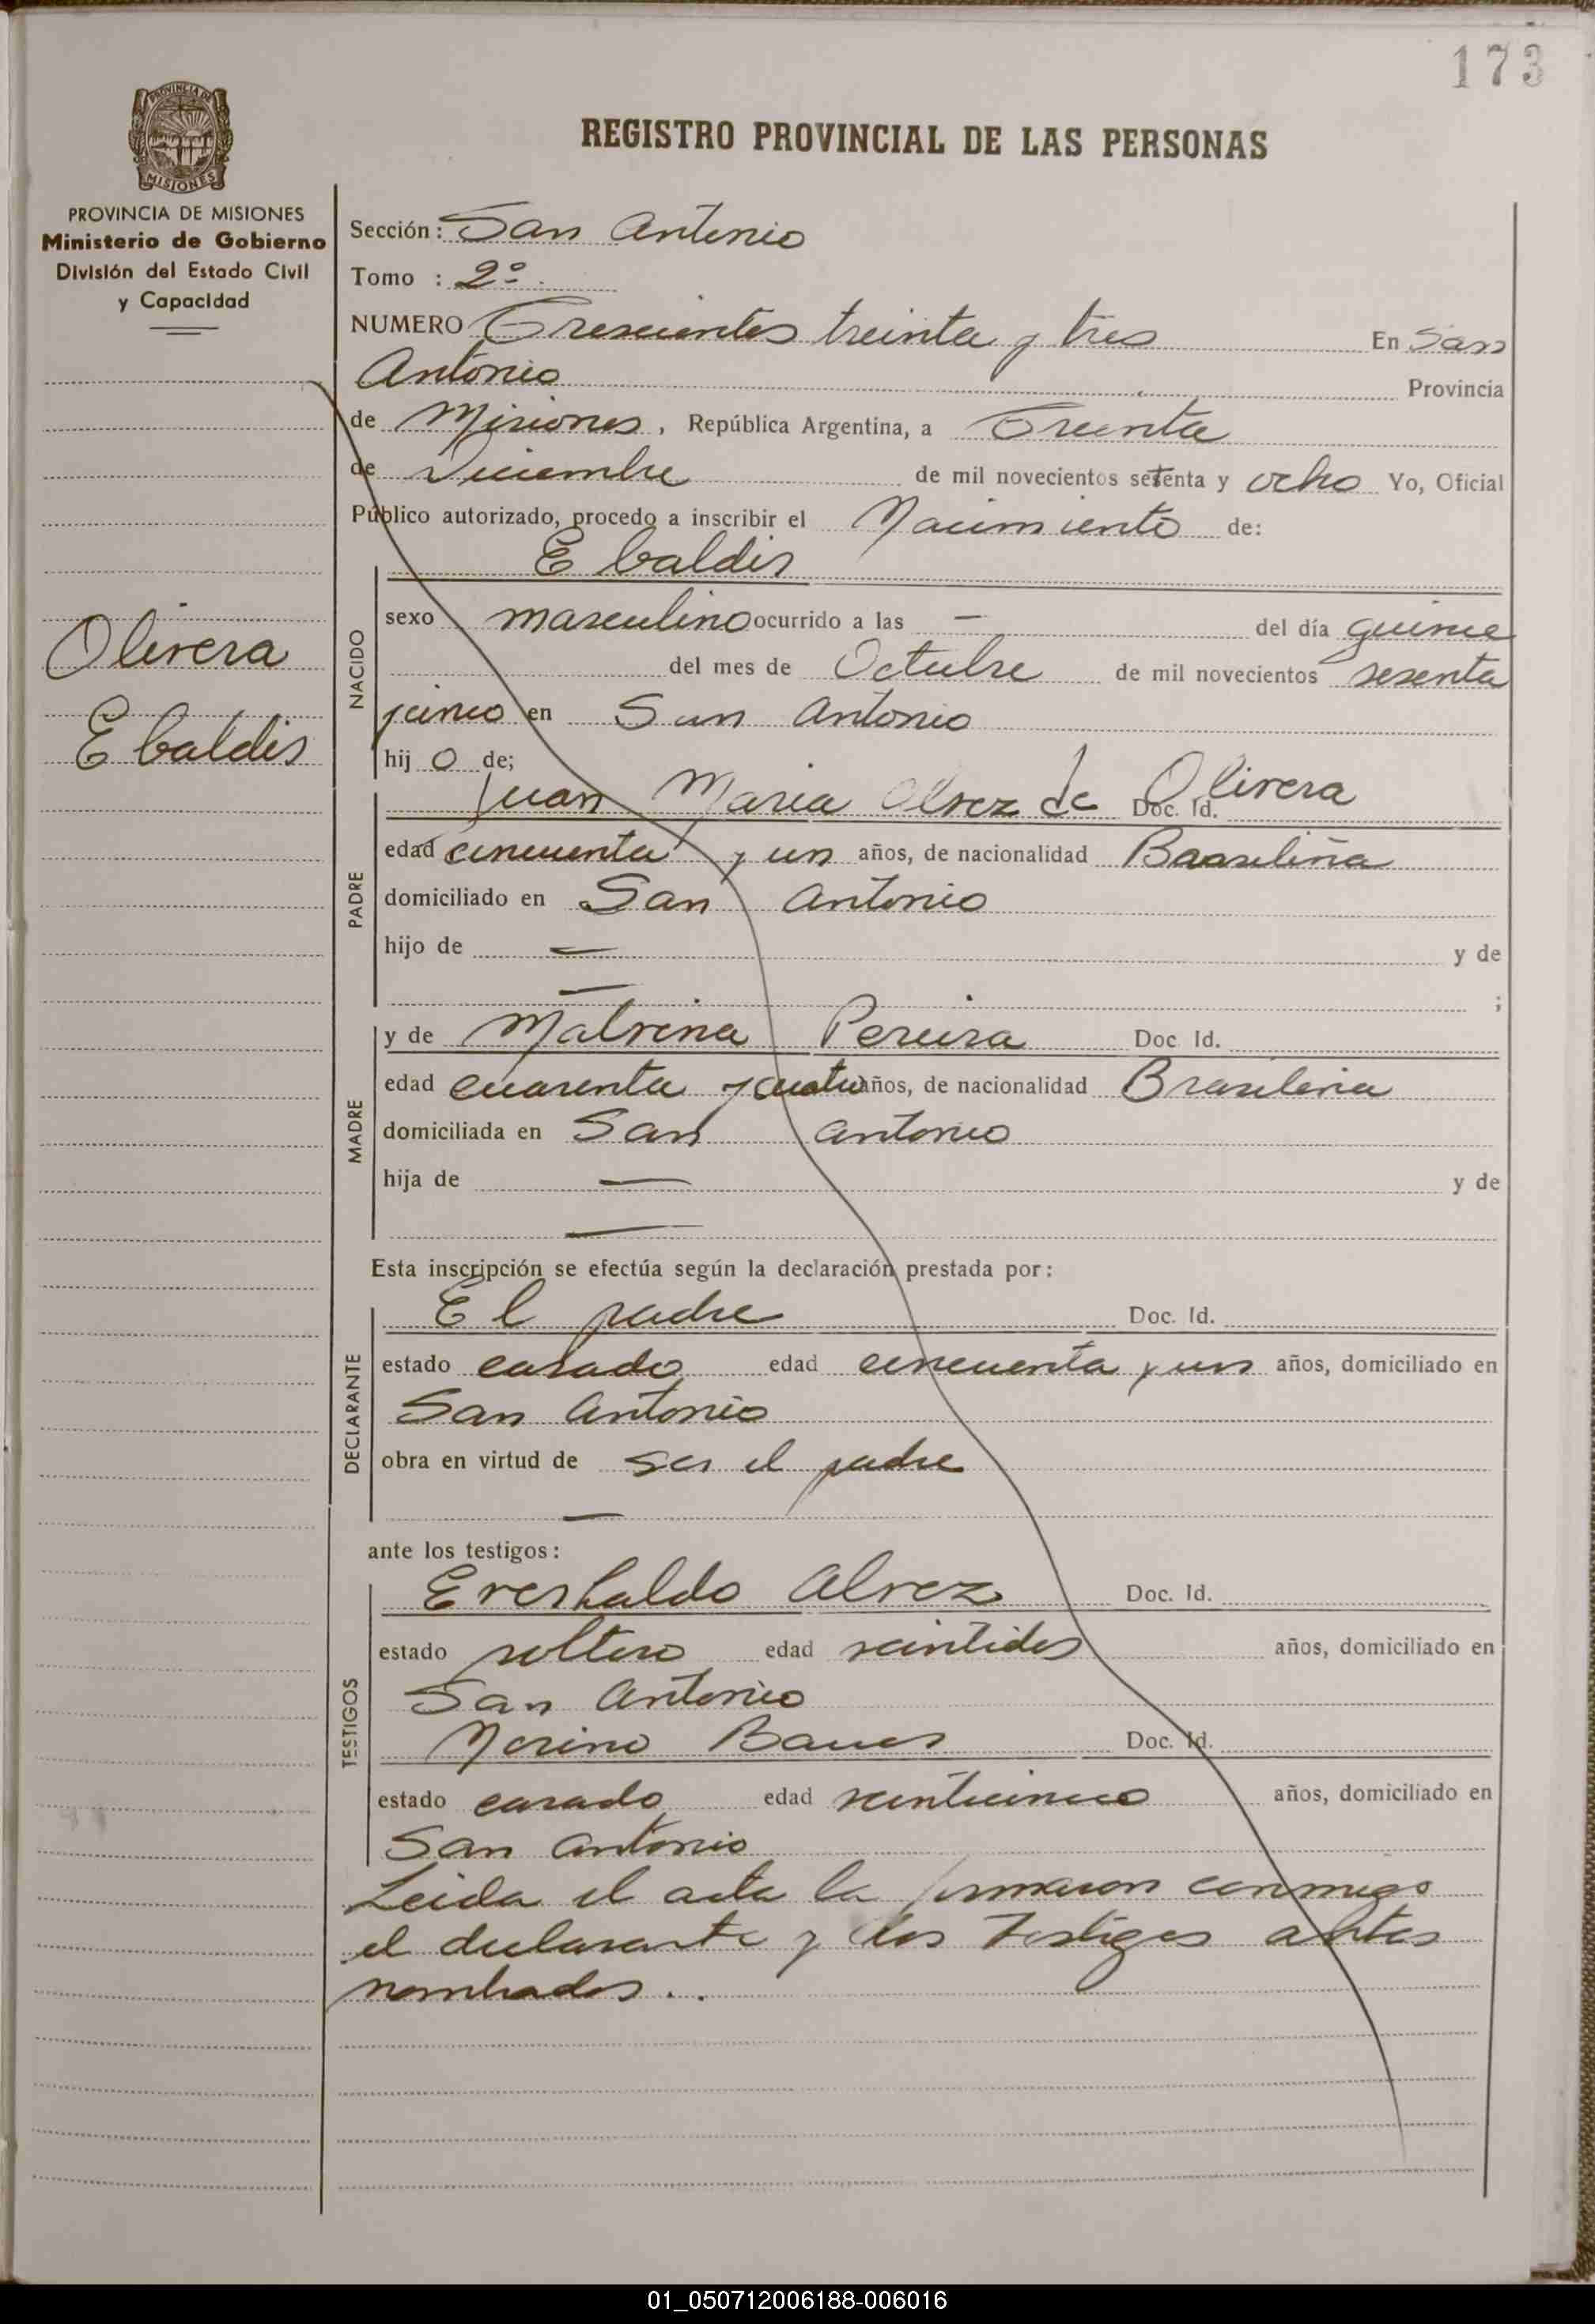 173
PROVINCIA DE MISIONES
REGISTRO PROVINCIAL DE LAS PERSONAS
PROVINCIA DE MISIONES
Ministerio de Gobierno
División del Estado Civil
y Capacidad
Olivera
Ebaldis
Sección: San Antonio
Tomo : 2º
NUMERO Trescientos treinta y tres En San
Antonio Provincia
de Misiones, República Argentina, a Treinta
de Diciembre de mil novecientos setenta y ocho Yo, Oficial
Público autorizado, procedo a inscribir el Nacimiento de:
Ebaldis
NACIDO
sexo masculino ocurrido a las — del día quince
del mes de Octubre de mil novecientos sesenta
y cinco en San Antonio
hij o de;
PADRE
Juan Maria Alvez de Olivera Doc. Id.
edad cincuenta y un años, de nacionalidad Brasileña
domiciliado en San Antonio
hijo de — y de
— ;
MADRE
y de Malvina Pereira Doc Id.
edad cuarenta y cuatro años, de nacionalidad Brasileña
domiciliada en San Antonio
hija de — y de
—
Esta inscripción se efectúa según la declaración prestada por:
DECLARANTE
El padre Doc. Id.
estado casado edad cincuenta y un años, domiciliado en
San Antonio
obra en virtud de ser el padre
—
ante los testigos:
TESTIGOS
Alvez Doc. Id.
estado soltero edad veintidos años, domiciliado en
San Antonio
Doc. Id.
estado casado edad veinticinco años, domiciliado en
San Antonio
Leida el acta la firmaron conmigo
el declarante y los Testigos antes
nombrados..
01_050712006188-006016